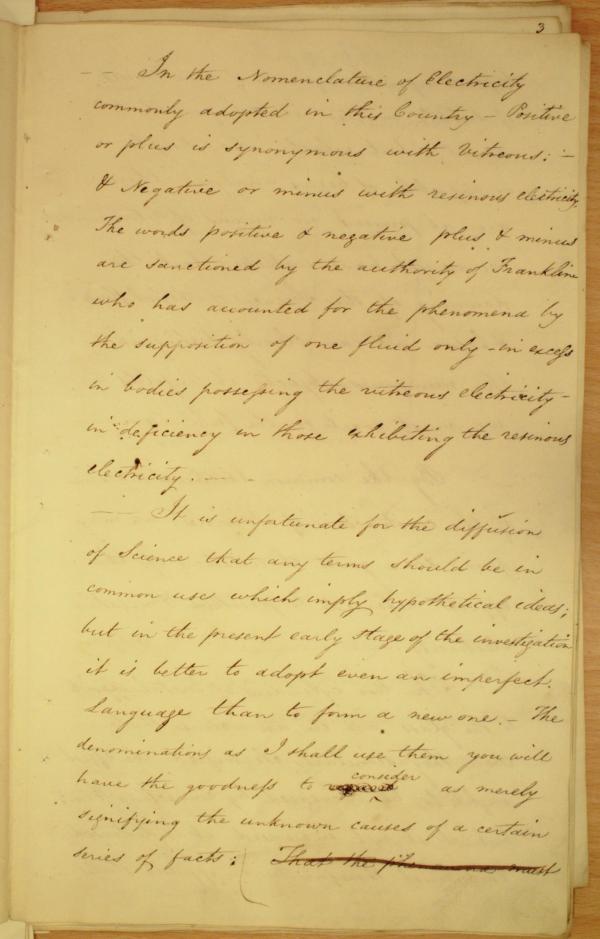 3
-- In the Nomenclature of Electricity
commonly adopted in this Country - Positive
or plus is synonymous with Vitreous: -
& Negative or minus with resinous electricity.
The words positive & negative plus & minus
are sanctioned by the authority of Frankline
who has accounted for the phenomena by
the supposition of one fluid only - in excess
in bodies possessing the vitreous electricity -
in deficiency in those exhibiting the resinous
electricity. -
-- It is unfortunate for the diffusion
of Science that any terms should be in
common use which imply hypothetical ideas;
but in the present early stage of the investigation
it is better to adopt even an imperfect.
Language than to form a new one. - The
denominations as I shall use them you will
have the goodness to consider as merely
signifying the unknown causes of a certain
series of facts: That the phenomena must